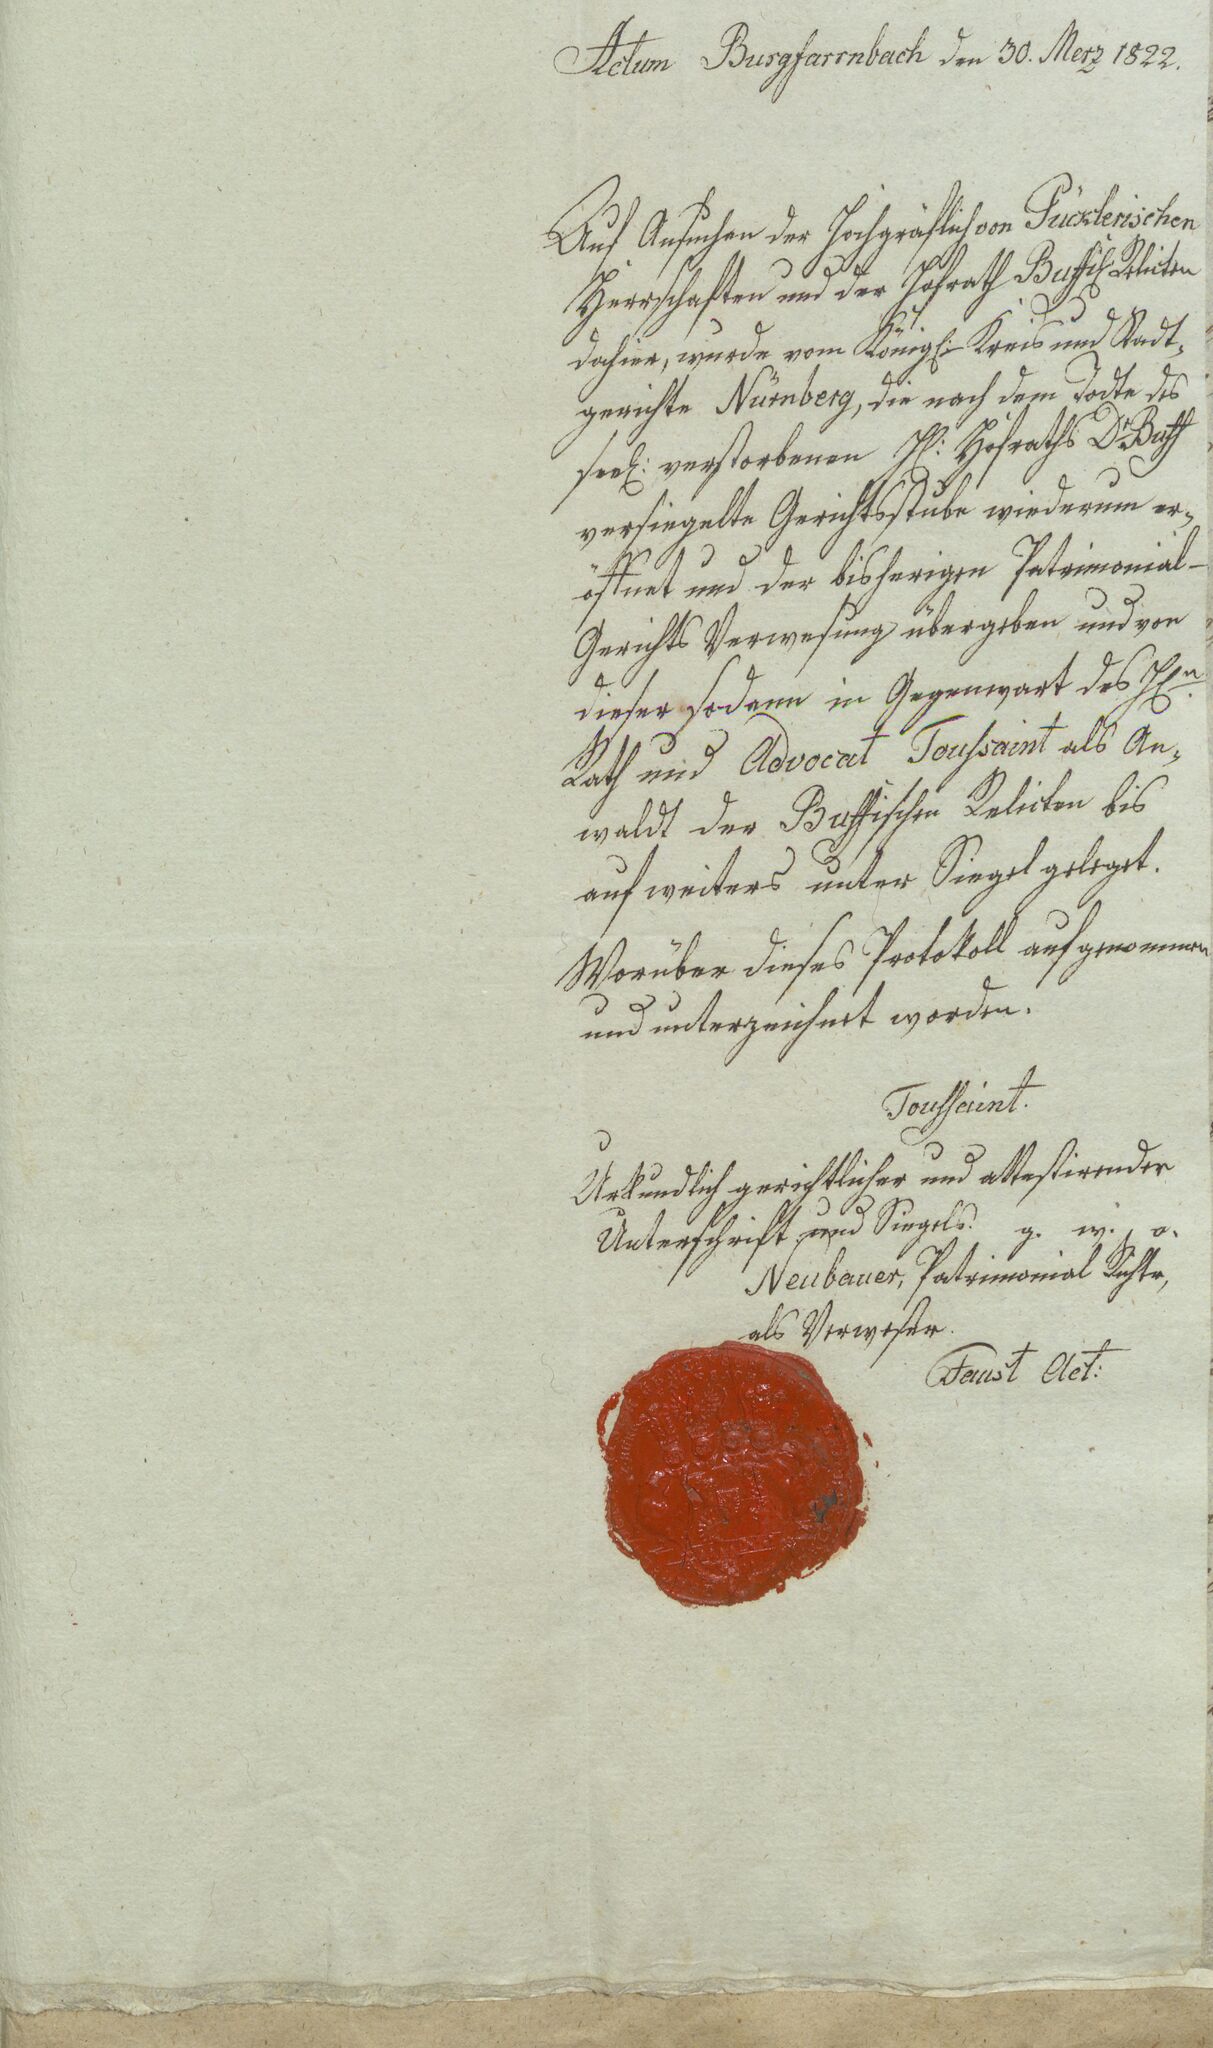 Actum Burgfarrnbach den 30. Merz 1822.
Auf Ansuchen der Hochgräflich von Pücklerischen
Herrschaften und der Hofrath Buffl: Relicten
dahier, wurde vom Königl: Kreis und Stadt-
gerichte Nürnberg, die nach dem Todte des
seel: verstorbenen H: Hofraths Dr
versiegelte Gerichtsstube wiederum er-
öffnet und der bisherigen Patrimonial-
Gerichts Verwesung übergeben und von
dieser sodann in Gegenwart des Hn.
Rath und Advocat Toussaint als An-
waldt der Buffischen Relicten bis
auf weiters unter Siegel geleget.
Worüber dieses Protokoll aufgenommen
und unterzeichnet worden.
Toussaint.
Urkundlich gerichtlicher und attestirender
Unterschrift und Siegels. g. w. o.
Neubauer, Patrimonial Richtr,
als Verweser.
Faust Act: